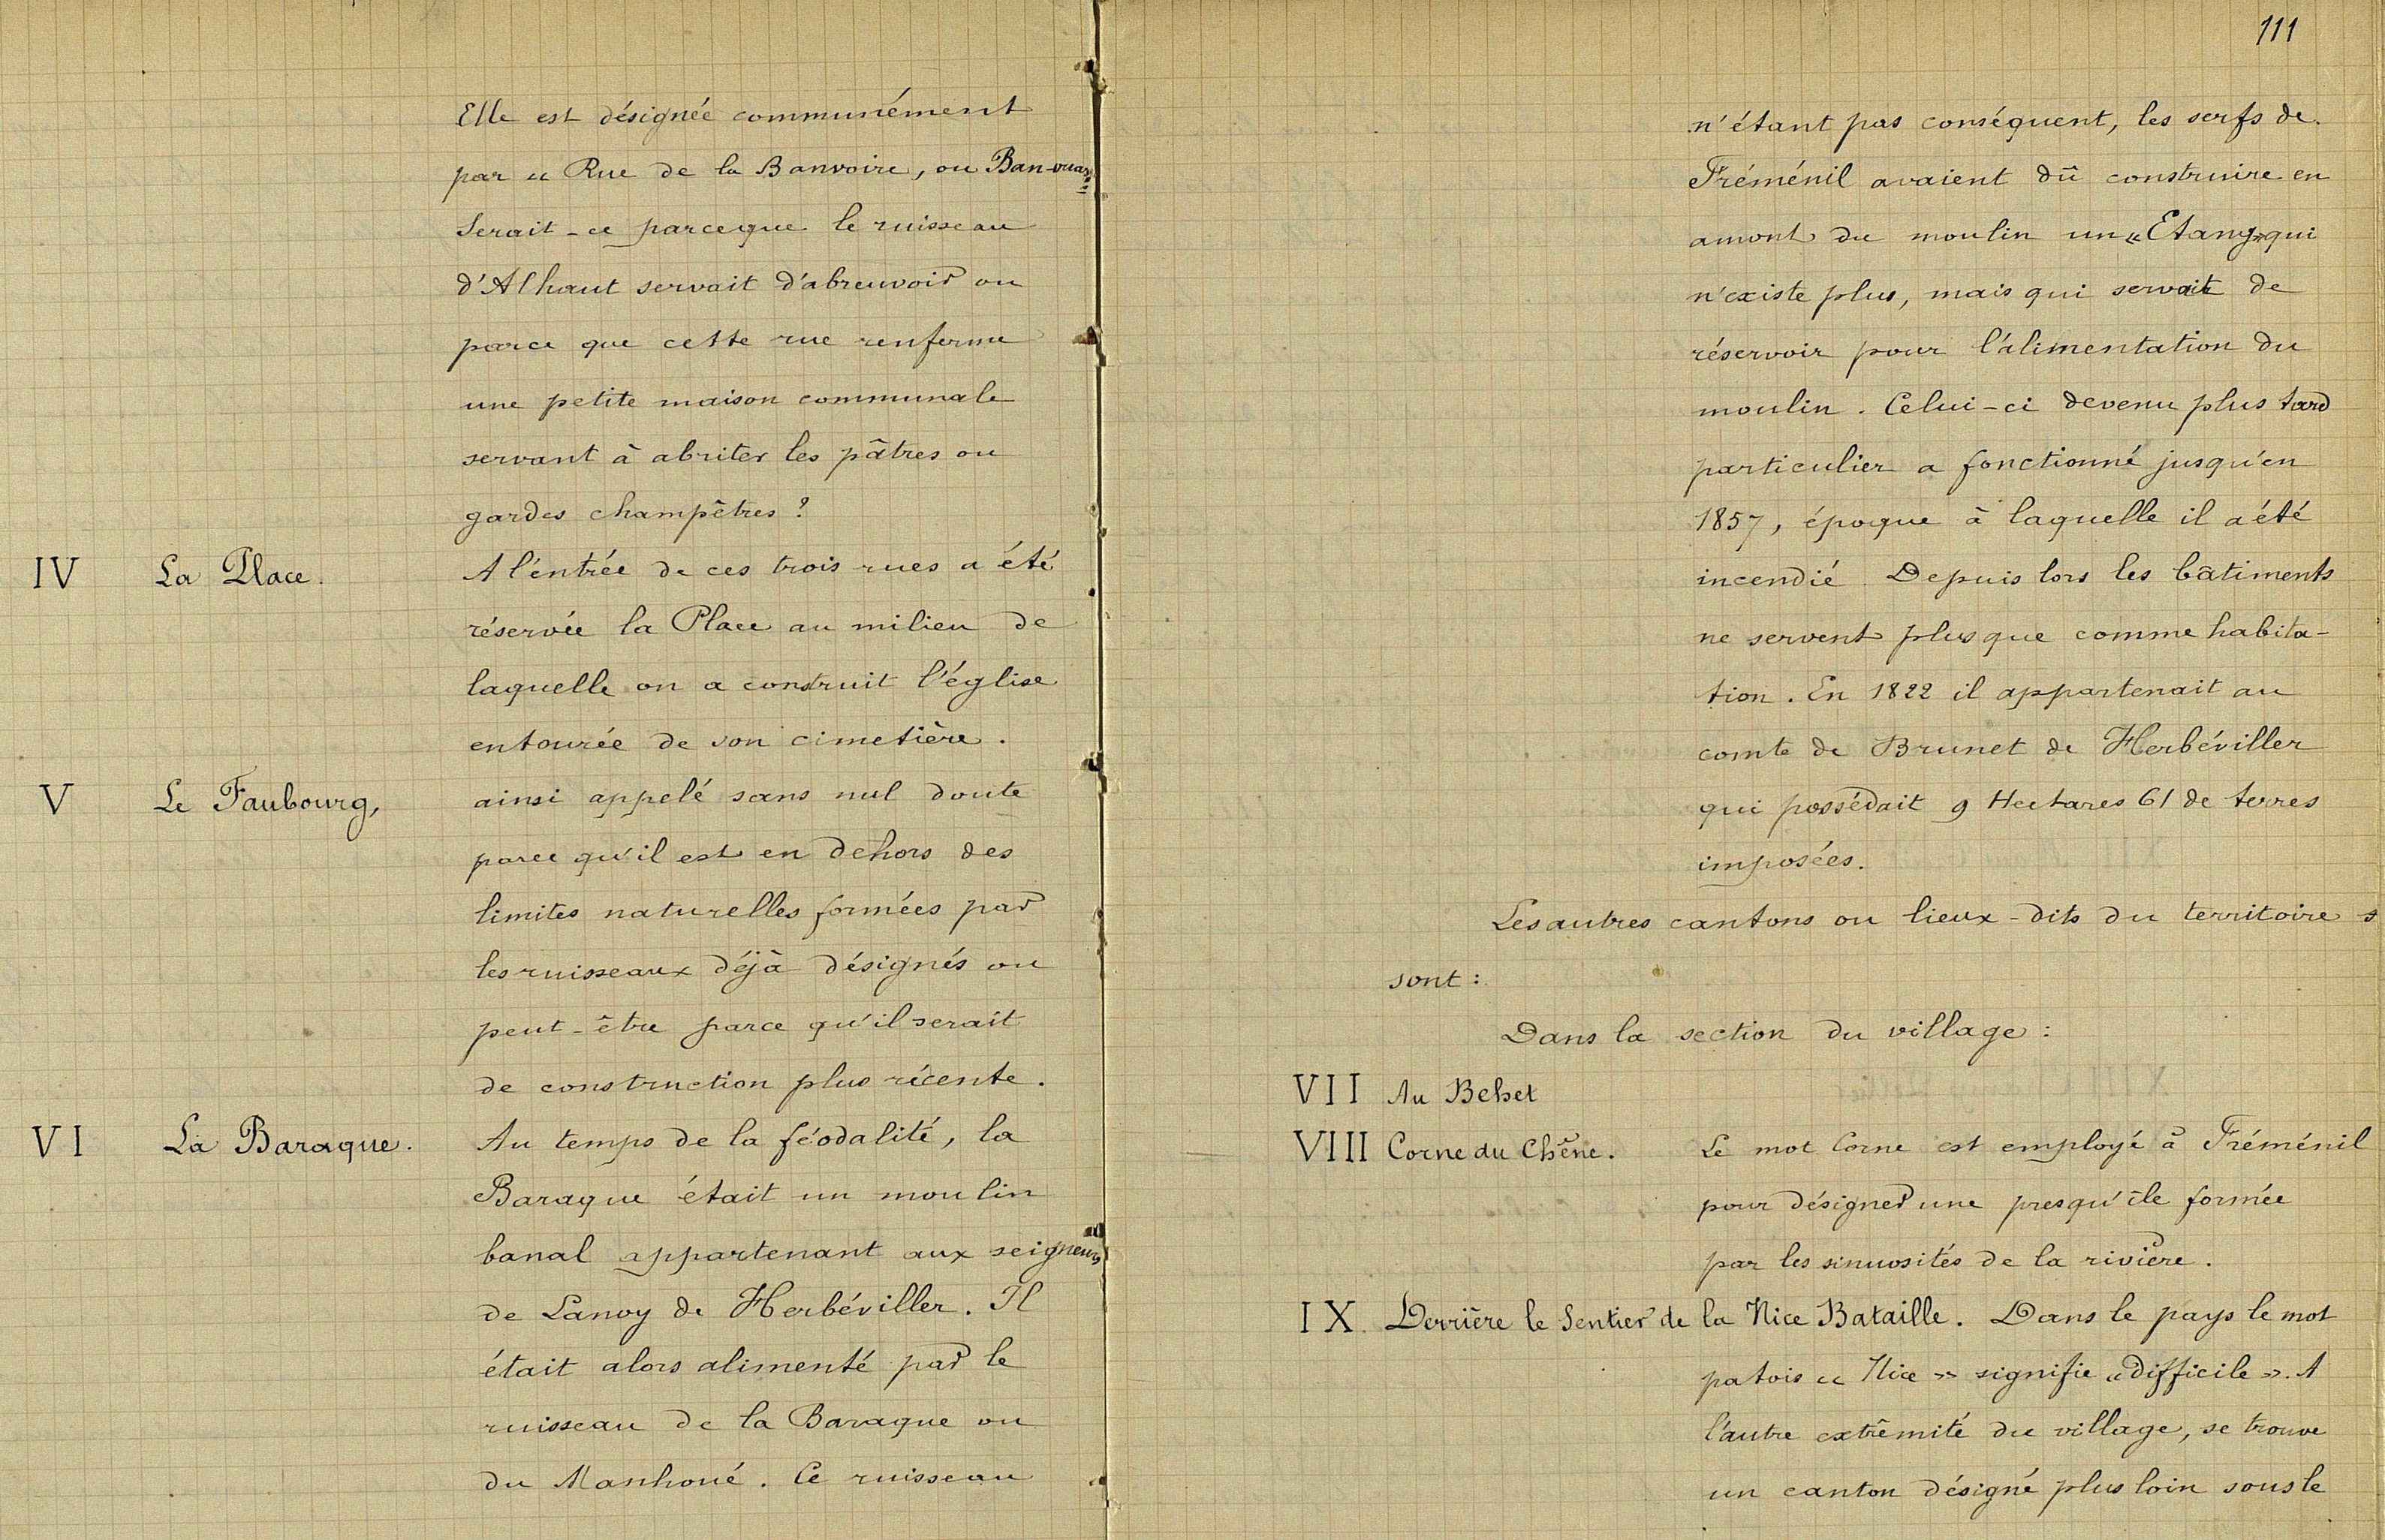 Elle est désignée communément
par « Rue de la Banvoire, ou Ban-ouar »
Serait-ce parceque le ruisseau
d'Alhaut servait d'abreuvoir ou
parce que cette rue renferme
une petite maison communale
servant à abriter les pâtres ou
gardes champêtres ?
IV La Place. A l'entrée de ces trois rues a été
réservée la Place au milieu de
laquelle on a construit l'église
entourée de son cimetière.
V Le Faubourg, ainsi appelé sans nul doute
parce qu'il est en dehors des
limites naturelles formées par
les ruisseaux déjà désignés ou
peut-être parce qu'il serait
de construction plus récente.
VI La Baraque. Au temps de la féodalité, la
Baraque était un moulin
banal appartenant aux seigneurs
de Lanoy de Herbéviller. Il
était alors alimenté par le
ruisseau de la Baraque ou
du Manhoué. Ce ruisseau
111
n'étant pas conséquent, les serfs de
Fréménil avaient dû construire en
amont du moulin un « Etang » qui
n'existe plus, mais qui servait de
réservoir pour l'alimentation du
moulin. Celui-ci devenu plus tard
particulier a fonctionné jusqu'en
1857, époque à laquelle il a été
incendié. Depuis lors les bâtiments
ne servent plus que comme habita-
tion. En 1822 il appartenait au
comte de Brunet de Herbéviller
qui possédait 9 Hectares 61 de terres
imposées.
Les autres cantons ou lieux-dits du territoire
sont :
Dans la section du village :
VII Au Behet
VIII Corne du Chêne. Le mot Corne est employé à Fréménil
pour désigner une presqu'île formée
par les sinuosités de la rivière.
IX Derrière le Sentier de la Nice Bataille. Dans le pays le mot
patois « Nice » signifie « difficile ». A
l'autre extrêmité du village, se trouve
un canton désigné plus loin sous le